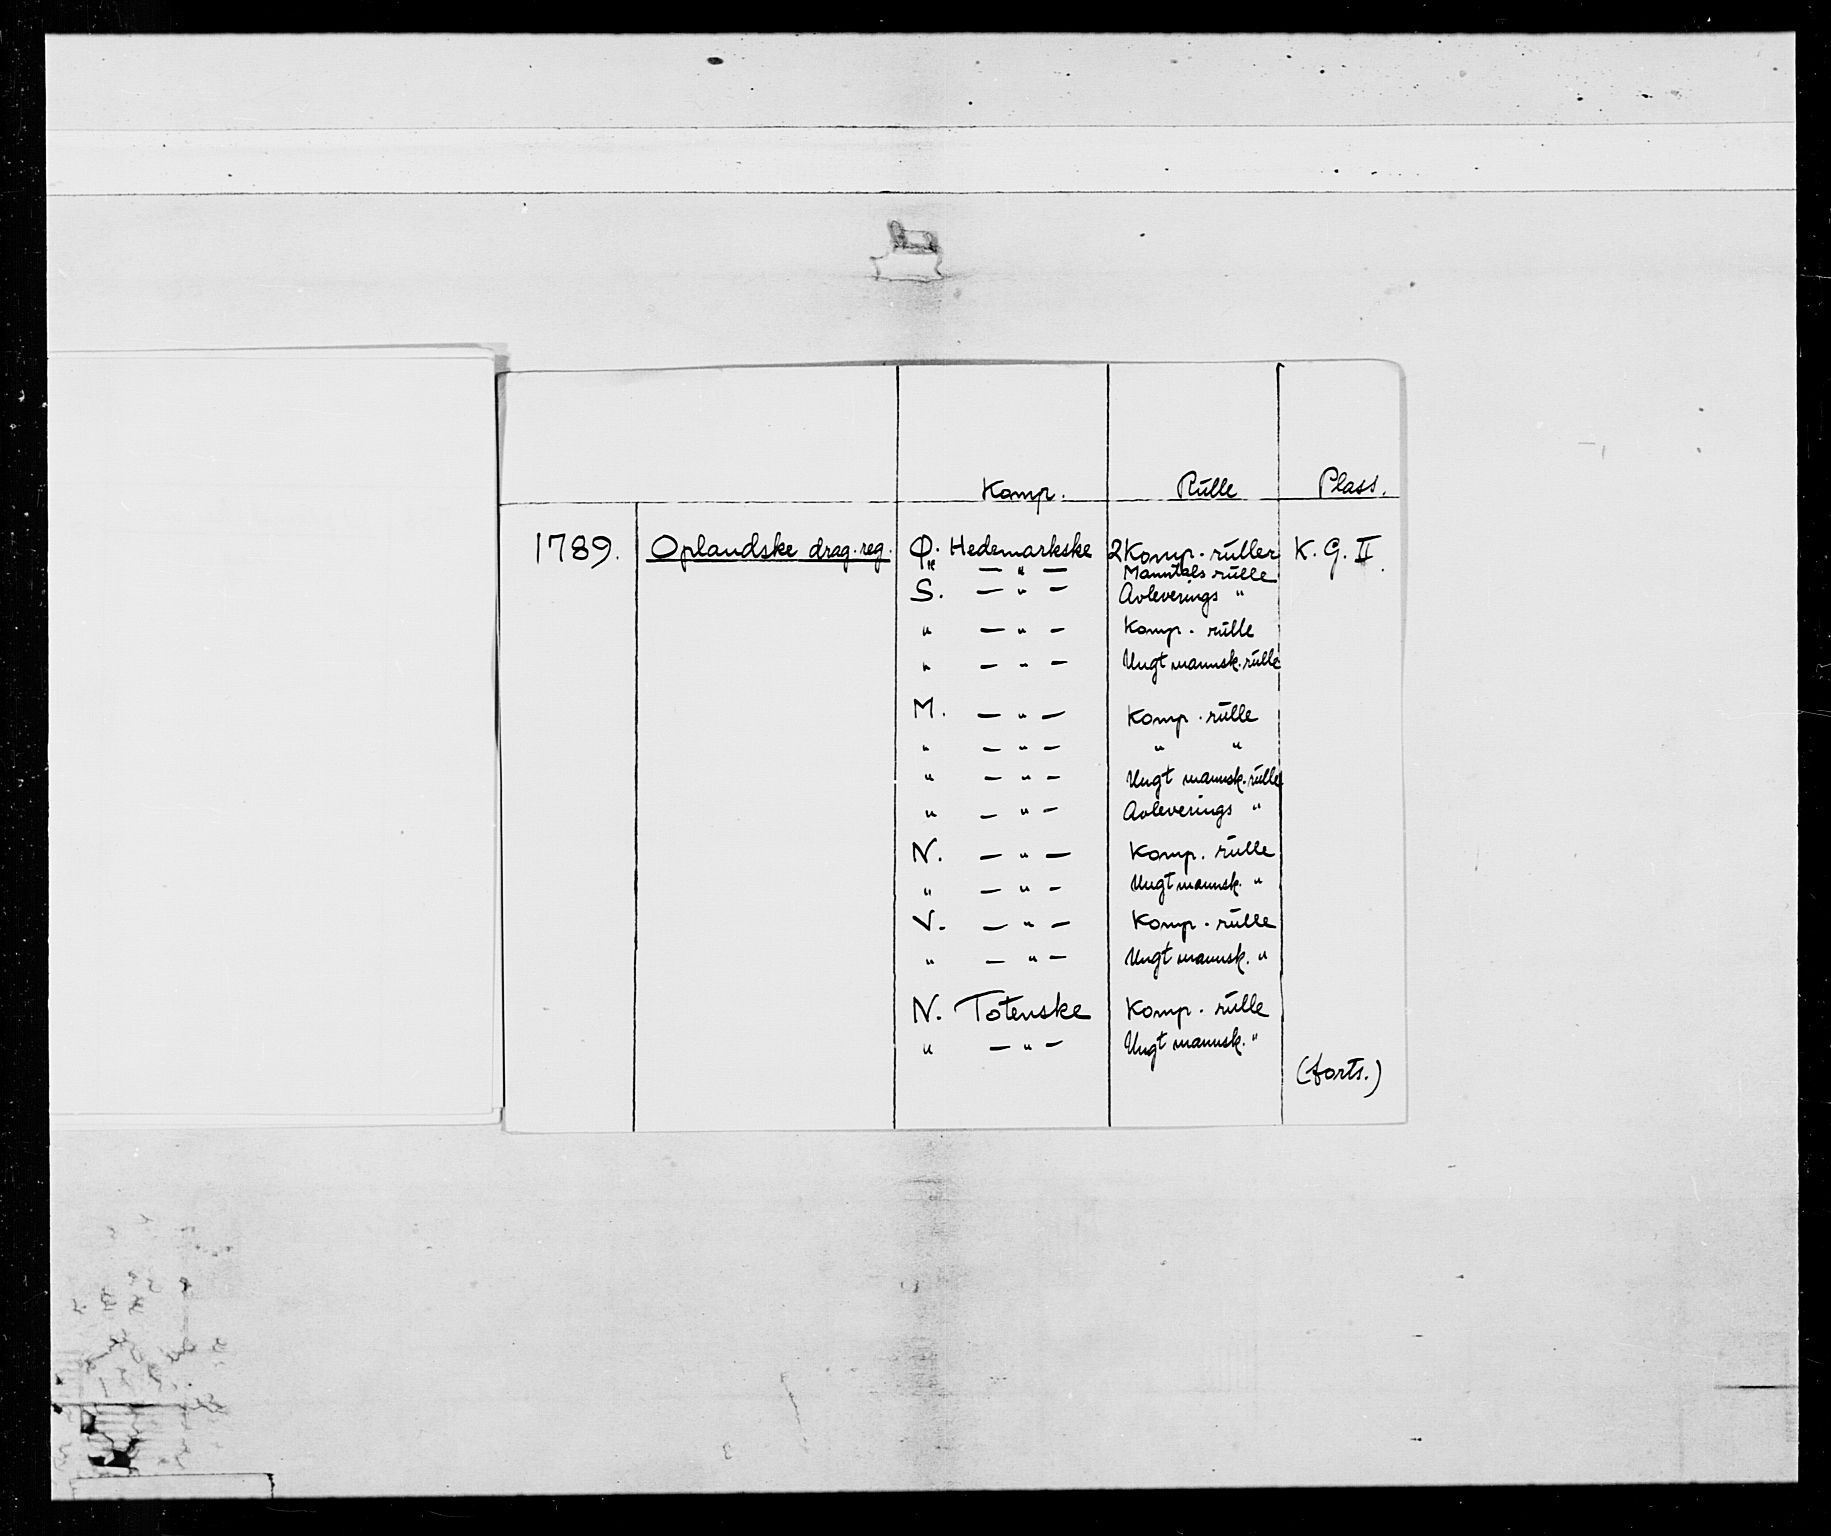 Komp. Rulle Plass.
1789. Oplandske drag. reg. Ø. Hedemarkske 2 Komp. ruller K. G. II.
" — " — Manntalsrulle
S. — " — Avleverings "
" — " — Komp. rulle
" — " — Ungt mannsk. rulle
M. — " — Komp. rulle
" — " — " "
" — " — Ungt mannsk. rulle
" — " — Avleverings "
N. — " — Komp. rulle
" — " — Ungt mannsk. "
V. — " — Komp. rulle
" — " — Ungt mannsk. "
N. Totenske Komp. rulle
" — " — Ungt mannsk. "
(forts.)